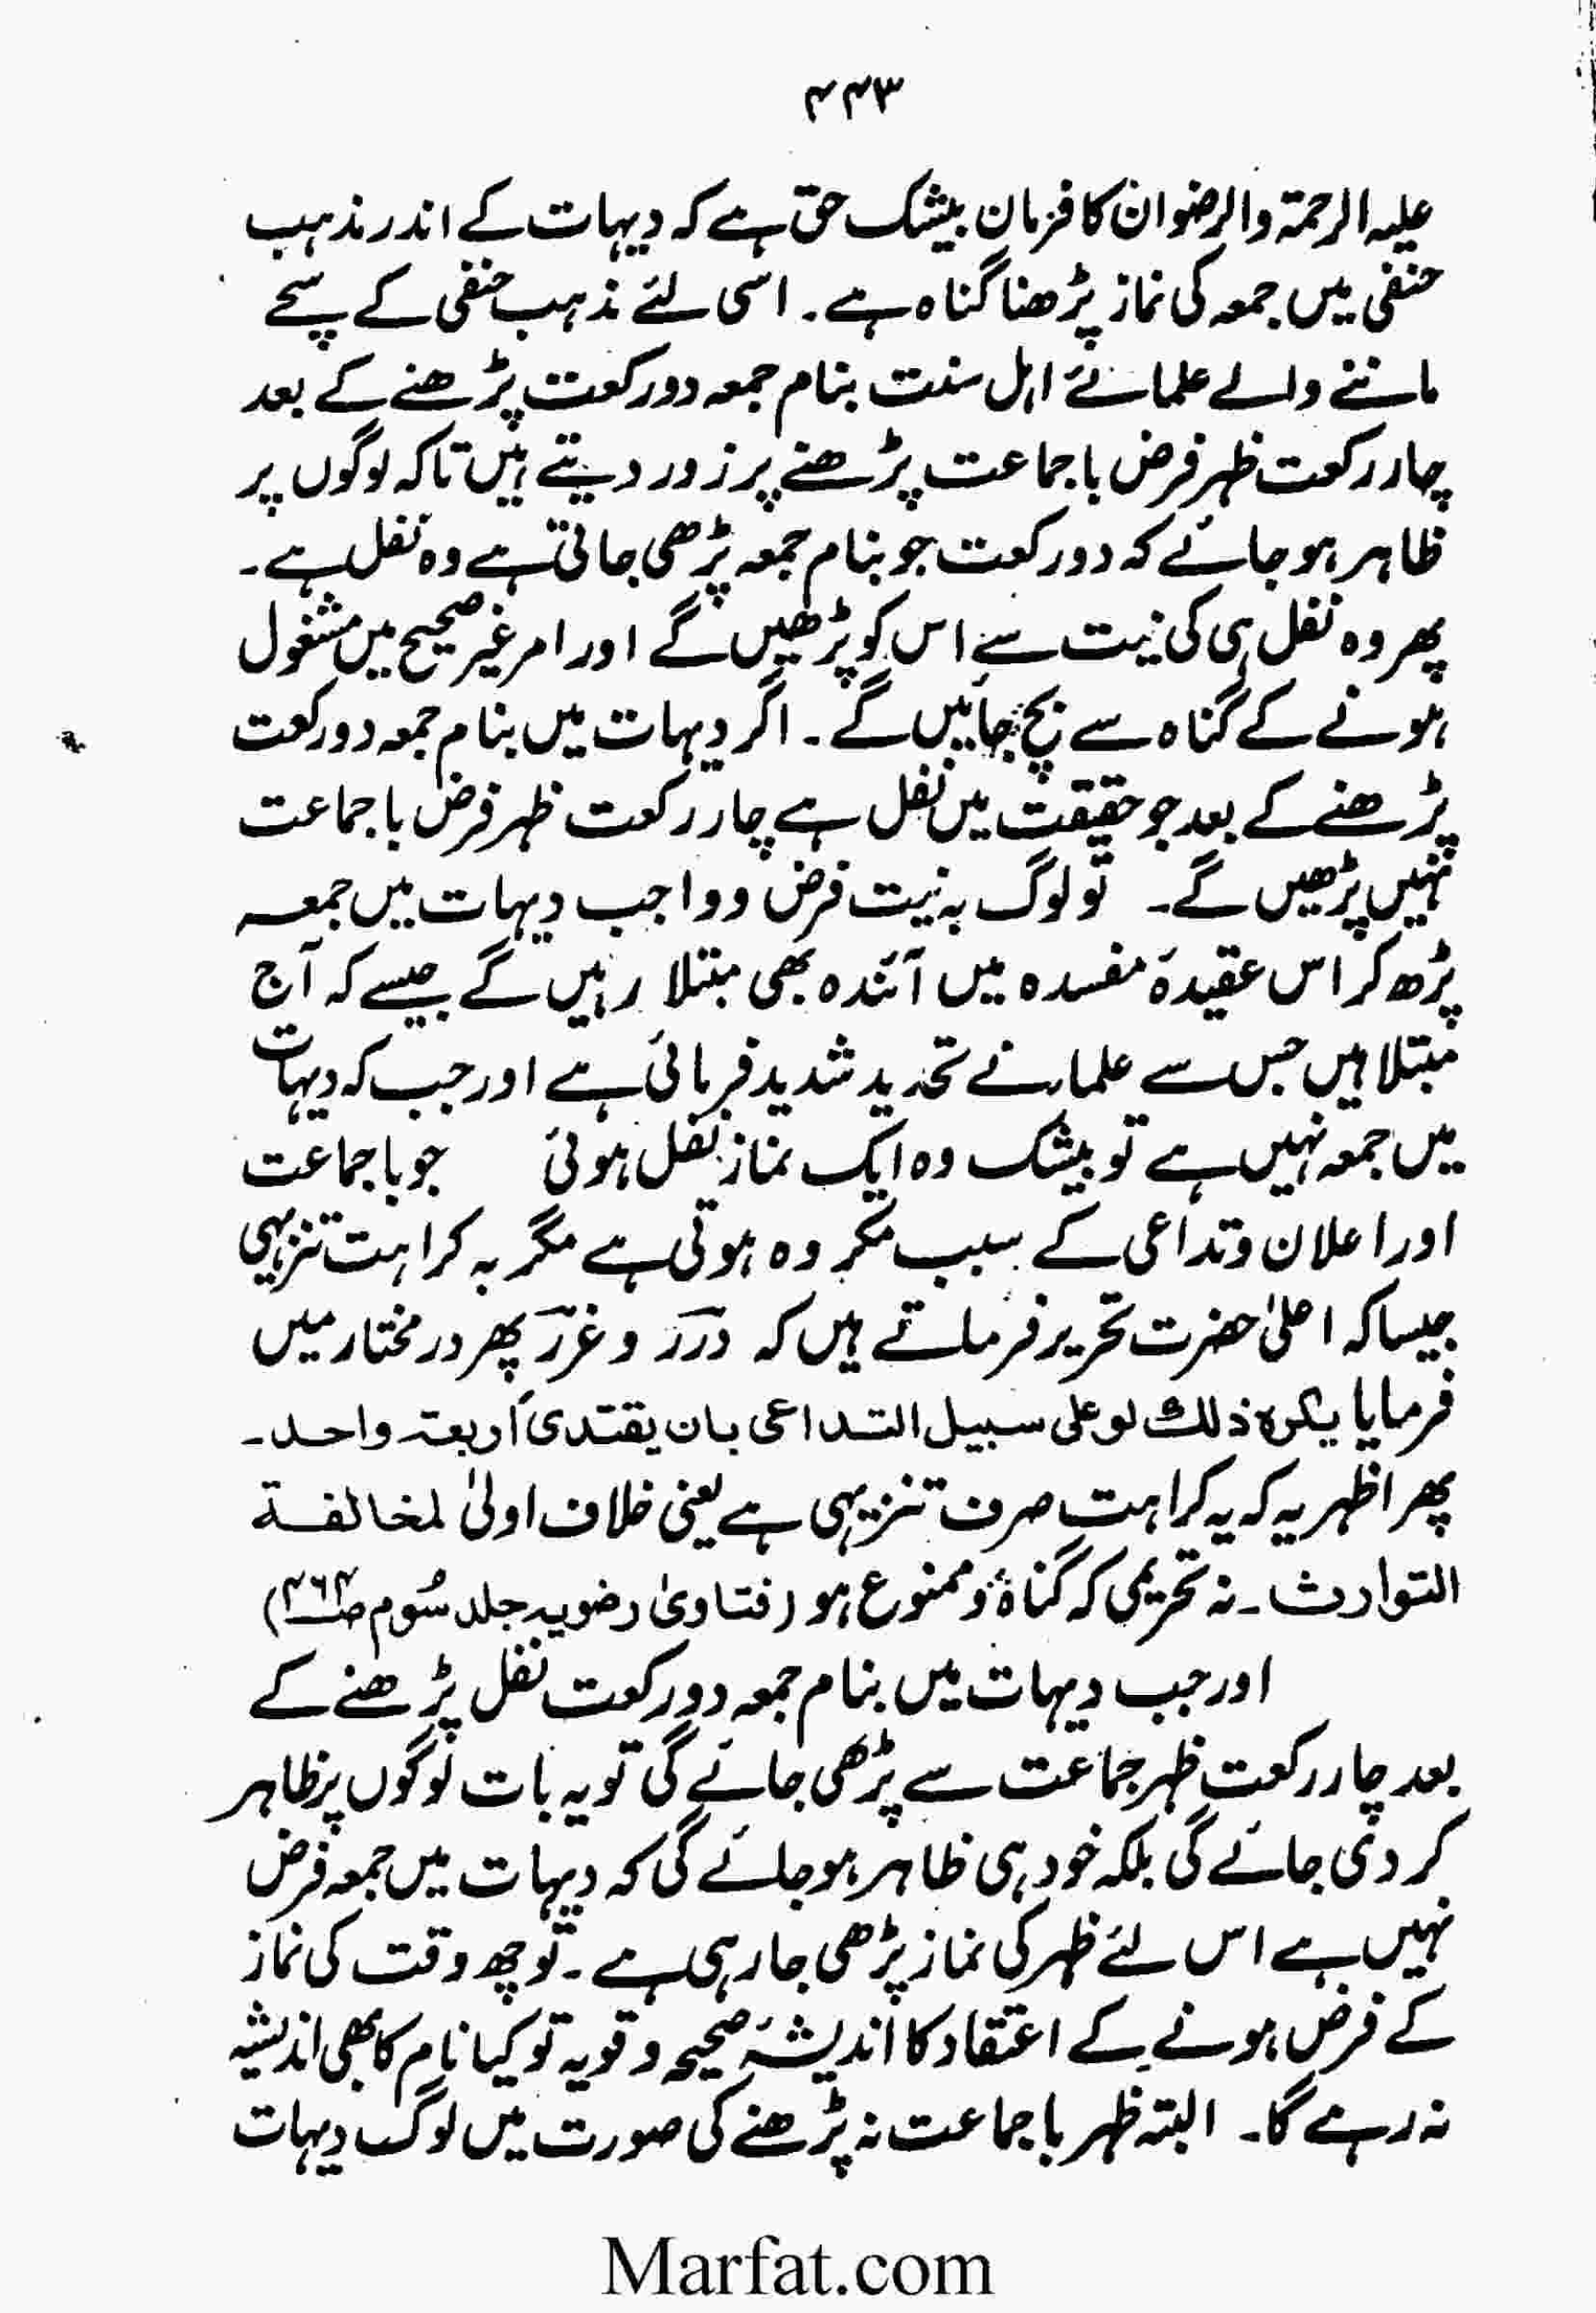 ۴۴۳
علیہ الرحمۃ والرضوان کا فرمان بیشک حق ہے کہ دیہات کے اندر مذہب
حنفی میں جمعہ کی نماز پڑھنا گناہ ہے۔ اسی لئے مذہب حنفی کے سچے
ماننے والے علمائے اہل سنت بنام جمعہ دو رکعت پڑھنے کے بعد
چار رکعت ظہر فرض با جماعت پڑھنے پر زور دیتے ہیں تاکہ لوگوں پر
ظاہر ہو جائے کہ دو رکعت جو بنام جمعہ پڑھی جاتی ہے وہ نفل ہے۔
پھر وہ نفل ہی کی نیت سے اس کو پڑھیں گے اور امر غیر صحیح میں مشغول
ہونے کے گناہ سے بچ جائیں گے۔ اگر دیہات میں بنام جمعہ دو رکعت
پڑھنے کے بعد جو حقیقت میں نفل ہے چار رکعت ظہر فرض با جماعت
نہیں پڑھیں گے۔ تو لوگ بہ نیت فرض و واجب دیہات میں جمعہ
پڑھ کر اس عقیدۂ مفسدہ میں آئندہ بھی مبتلا رہیں گے جیسے کہ آج
مبتلا ہیں جس سے علماء نے تحذید شدید فرمائی ہے اور جب کہ دیہات
میں جمعہ نہیں ہے تو بیشک وہ ایک نماز نفل ہوئی جو با جماعت
اور اعلان و تداعی کے سبب مکروہ ہوتی ہے مگر بہ کراہت تنزیہی
جیسا کہ اعلیٰ حضرت تحریر فرماتے ہیں کہ درر و غرر پھر در مختار میں
فرمایا یکرہ ذلك لو علی سبیل التداعی بان یقتدی أربعۃ واحد۔
پھر اظہر یہ کہ یہ کراہت صرف تنزیہی ہے یعنی خلاف اولیٰ لمخالفة
التوارث۔ نہ تحریمی کہ گناہ و ممنوع ہو (فتاویٰ رضویہ جلد سُوم ص۴۶۴)
اور جب دیہات میں بنام جمعہ دو رکعت نفل پڑھنے کے
بعد چار رکعت ظہر جماعت سے پڑھی جائے گی تو یہ بات لوگوں پر ظاہر
کر دی جائے گی بلکہ خود ہی ظاہر ہو جائے گی کہ دیہات میں جمعہ فرض
نہیں ہے اس لئے ظہر کی نماز پڑھی جا رہی ہے۔ تو چھ وقت کی نماز
کے فرض ہونے کے اعتقاد کا اندیشۂ صحیحہ و قویہ تو کیا نام کا بھی اندیشہ
نہ رہے گا۔ البتہ ظہر با جماعت نہ پڑھنے کی صورت میں لوگ دیہات
Marfat.com